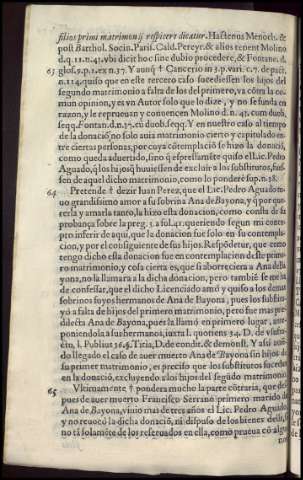 filios primi matrimonij respicere dicatur. Hactenus Menoch. &
post Barthol. Socin. Paris. Cald. Pereyr. & alios tenent Molino
d.q.11.n.41. vbi dicit hoc sine dubio procedere, & Fontane. d.
63 glos.5.p.1.ex n.37. Y aunq̃ † Cancerio in 3.p.vari.c.7. de pact.
n.114. quiso que en este tercero caso sucediessen los hijos del
segundo matrimonio a falta de los del primero, va cõtra la co-
mun opinion, y es vn Autor solo que lo dize, y no se funda en
razon, y le reprueuan y conuencen Molino d.n.41. cum duob.
seqq. Fontan. d.n.37. cũ duob. seqq. Y en nuestro caso al tiempo
de la donació no solo auia matrimonio cierto y capitulado en-
tre ciertas personas, por cuya cõtemplació se hizo la donació,
como queda aduertido, sino q̃ espressamẽte quiso el Lic. Pedro
Aguado, q̃ los hijos q̃ huuiessen de excluir a los substitutos, fues-
sen de aquel dicho matrimonio, como lo ponderè sup. n.18.
64 Pretende † dezir Iuan Perez, que el Lic. Pedro Aguado tu-
uo grandissimo amor a su sobrina Ana de Bayona, y q̃ por que-
rerla y amarla tanto, la hizo esta donacion, como consta de la
probança sobre la preg. 5. a fol.41. queriendo segun mi conce-
pto inferir de aqui, que la donacion fue solo en su contempla-
cion, y por el consiguiente de sus hijos. Respõdese, que como
tengo dicho esta donacion fue en contemplacion deste prime-
ro matrimonio, y cosa cierta es, que si aborreciera a Ana de Ba-
yona, no la llamara a la dicha donacion, pero tambiẽ se me ha
de confessar, que el dicho Licenciado amó y quiso a los demas
sobrinos suyos hermanos de Ana de Bayona, pues los substitu-
yó a falta de hijos del primero matrimonio, pero fue mas pre-
dilecta Ana de Bayona, pues la llamó en primero lugar, ante-
poniendola a sus hermanos, iuxta l. quoties 34. D. de vsufru-
cto, l. Publius 36. §. Titia, D. de condit. & demonst. Y assi auiẽ-
do llegado el caso de auer muerto Ana de Bayona sin hijos de
su primer matrimonio, es preciso que los substitutos sucedan
en la donació, excluyendo a los hijos del segũdo matrimonio.
65 Vltimamente † pondera mucho la parte cõtraria, que des-
pues de auer muerto Francisco Serrano primero marido de
Ana de Bayona, viuio mas de tres años el Lic. Pedro Aguado
y no reuocò la dicha donació, ni dispuso de los bienes della, si-
no tã solamẽte de los reseruados en ella, como prueua cõ algu-